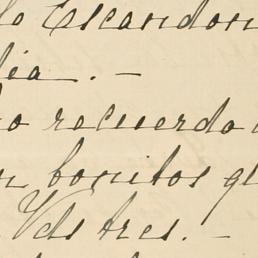 lo Escandon
lia. —
o recuerdo
n bonitos q
Vds tres. —